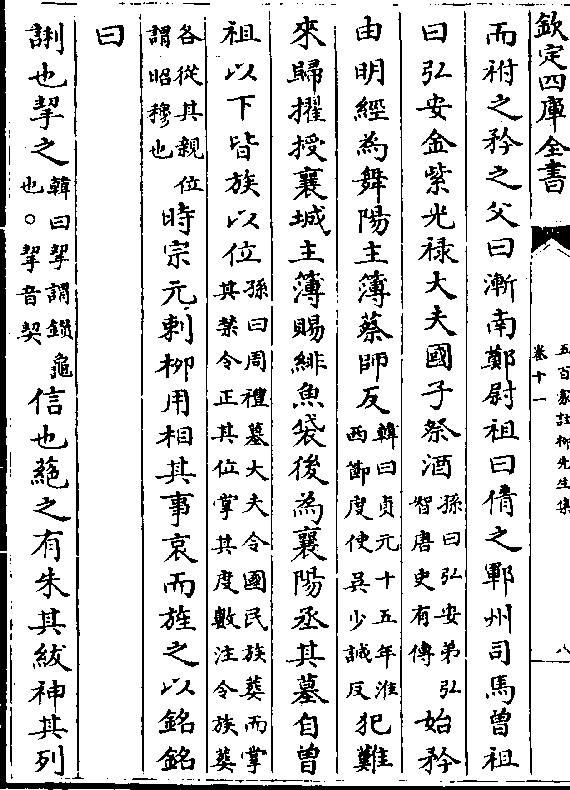 欽定四庫全書
五百家註柳先生集
卷十一
八
而祔之矜之父曰漸南鄭尉祖曰倩之鄆州司馬曾祖
曰弘安金紫光禄大夫國子祭酒孫曰弘安弟弘智唐史有傳始矜
由明經為舞陽主簿蔡師反韓曰貞元十五年淮西節度使吳少誠反犯難
來歸擢授襄城主簿賜緋魚袋後為襄陽丞其墓自曾
祖以下皆族以位孫曰周禮墓大夫令國民族葬而掌其禁令正其位掌其度數注令族葬
各從其親位謂昭穆也時宗元刺柳用相其事哀而旌之以銘銘
曰
誗也挈之韓曰挈謂鑚龜也○挈音契信也蕝之有朱其紱神其列